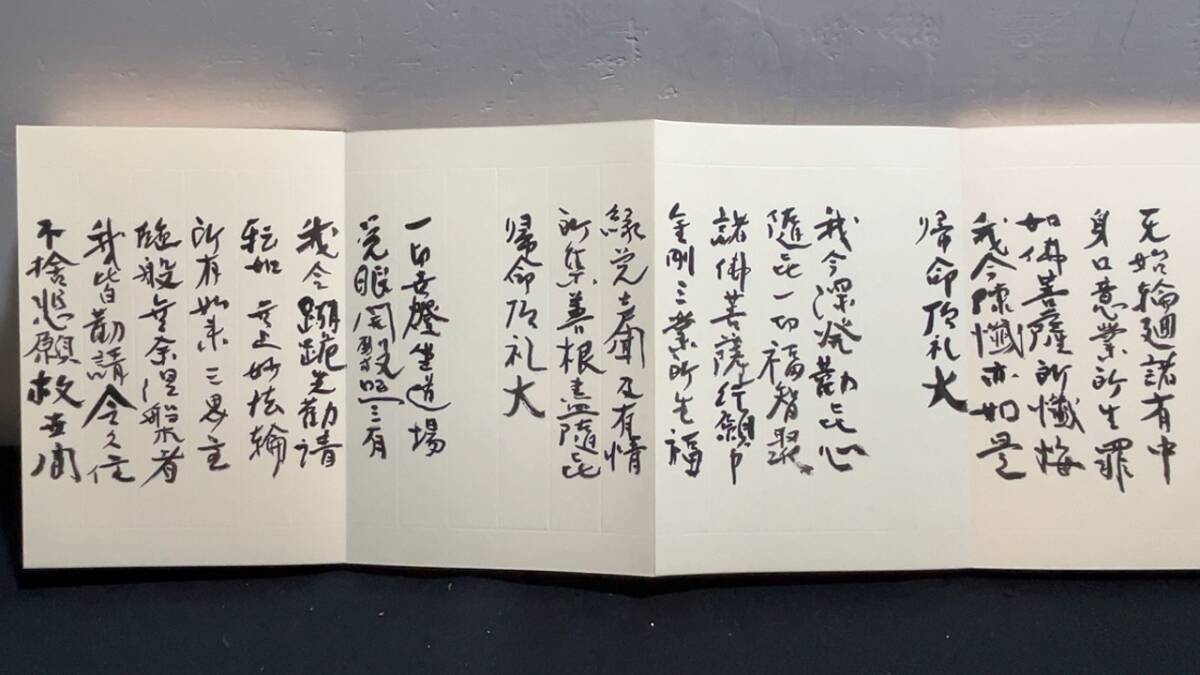 无始輪廻諸有中
身口意業所生罪
如佛菩薩所懺悔
我今陳懺亦如是
帰命頂礼大
我今深発勧㐂心
隨㐂一切福智聚
諸佛菩薩行願中
金剛三業所生福
縁覚声聞及有情
所集善根盡隨㐂
帰命頂礼大
一切世燈坐道場
覚眼開敷照三有
我今跪先勧請
転如无上妙法輪
所有如来三界主
臨般无余涅槃者
我皆勧請令久住
不捨悲願救世間